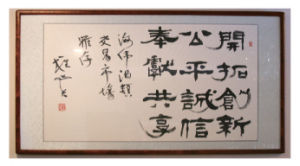 開拓創新
公平誠信
奉獻共享
海峰酒類
交易市場
雅存